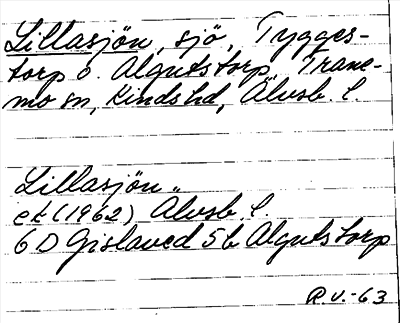 Lillasjön, sjö, Tygges-
torp o. Algutstorp, Trane-
mo sn, Kinds hd, Älvsb. l.
Lillasjön
ek (1962) Älvsb. l.
6 D Gislaved 5b Algutstorp
R.V.-63